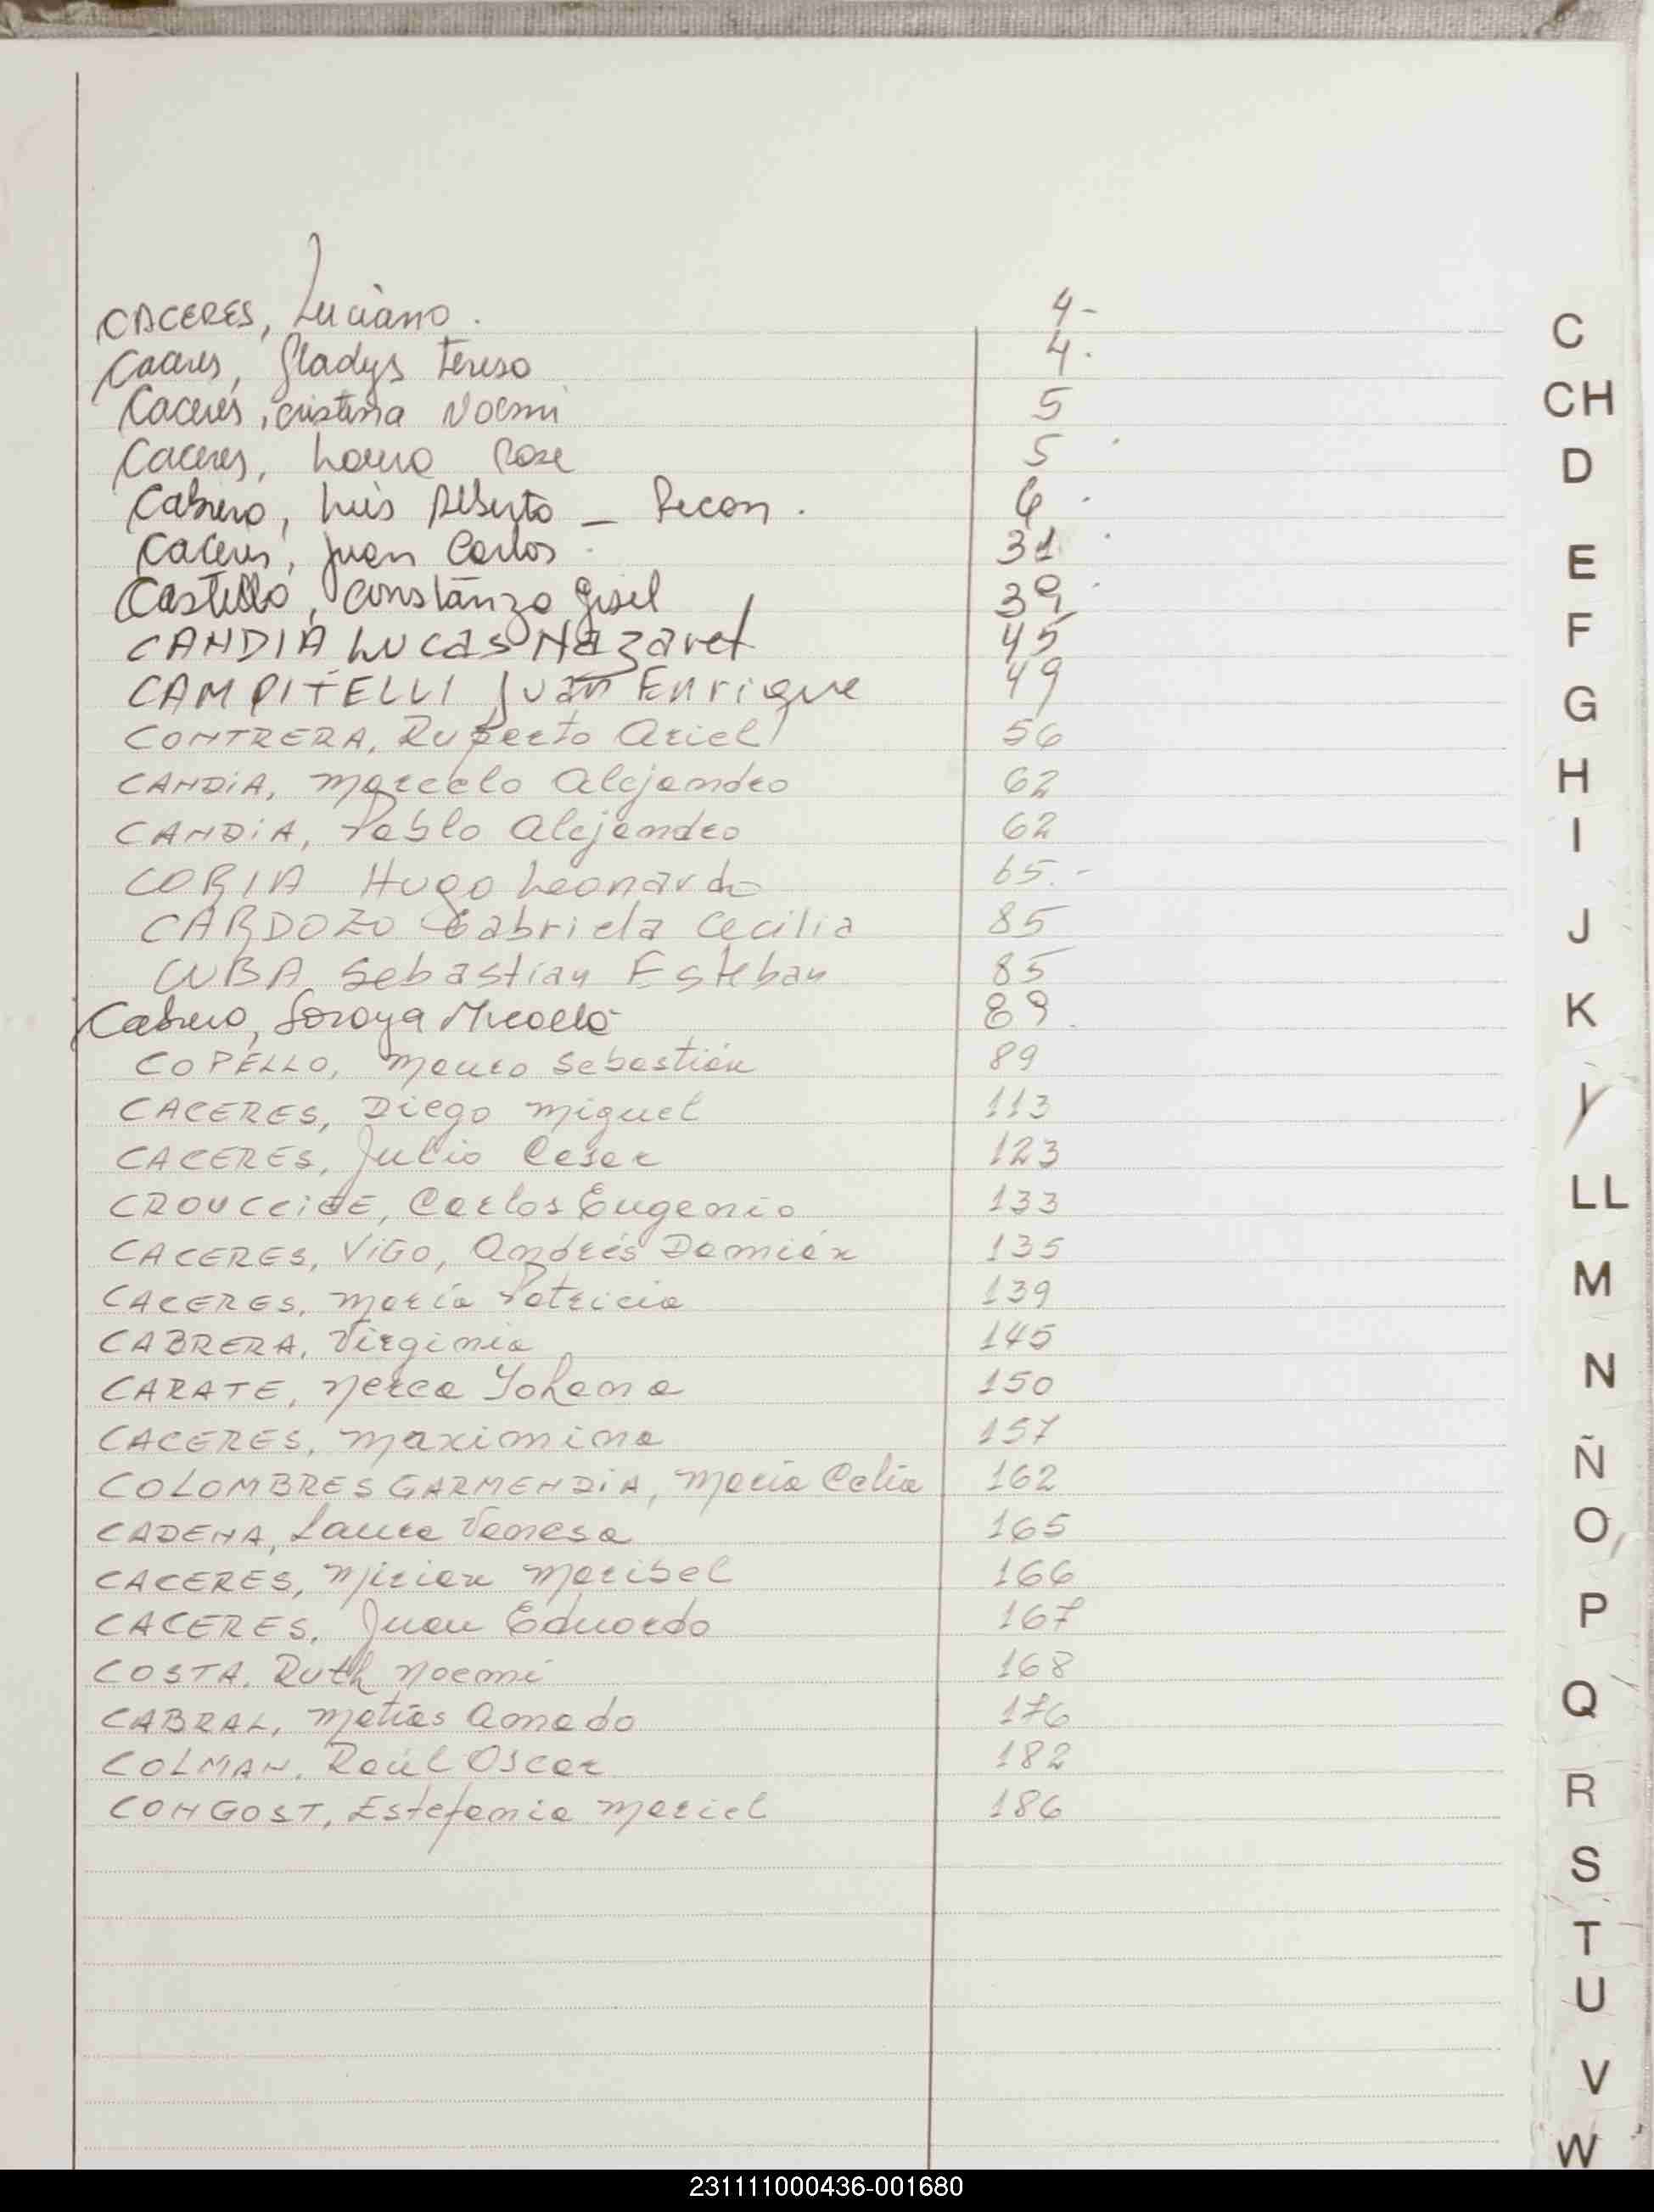 CACERES, Luciano. 4-
Caceres, Gladys Teresa 4.
Caceres, Cristina Noemi 5
Caceres, Laura Rosa 5
Cabrera, Luis Alberto - Recon. 6
Caceres, Juan Carlos 31
Castillo, Constanza Gisel 39
CANDIA LUCAS Nazaret 45
CAMPITELLI Juan Enrique 49
CONTRERA, Ruperto Ariel 56
CANDIA, Marcelo Alejandro 62
CANDIA, Pablo Alejandro 62
CORIA Hugo Leonardo 65.-
CARDOZO Gabriela Cecilia 85
CUBA Sebastian Esteban 85
Cabrera, Soroya Micaela 89
COPELLO, Mauro Sebastián 89
CACERES, Diego Miguel 113
CACERES, Julio Cesar 123
Carlos Eugenio 133
CACERES, VIGO, Andrés Damián 135
CACERES, María Patricia 139
CABRERA, Virginia 145
CARATE, Nerea Yohana 150
CACERES, Maximina 157
COLOMBRES GARMENDIA, María Celia 162
CADENA, Laura Vanesa 165
CACERES, Mirian Maribel 166
CACERES, Juan Eduardo 167
COSTA, Ruth Noemí 168
CABRAL, Matías Amado 176
COLMAN, Raúl Oscar 182
CONGOST, Estefania Mariel 186
C
CH
D
E
F
G
H
I
J
K
LL
M
N
Ñ
O
P
Q
R
S
T
U
V
W
231111000436-001680